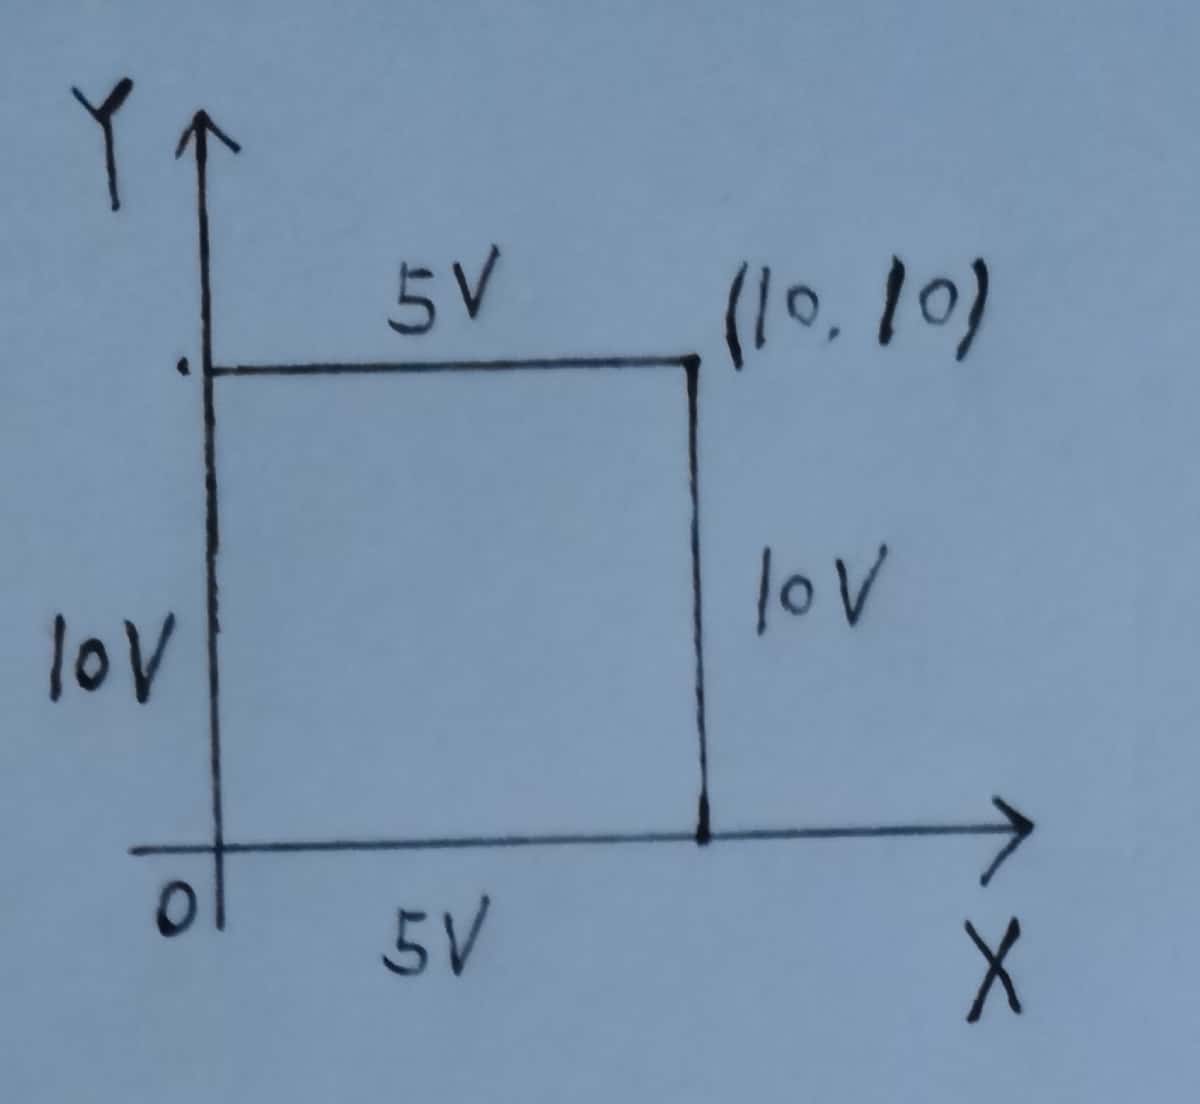 Y
5V
(10, 10)
10V
10V
0
5V
X